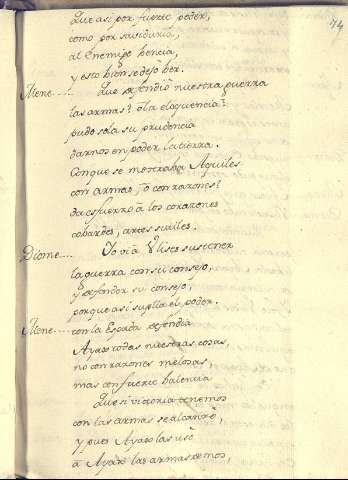 74
que asi por fuerte poder,
como por saviduria,
al Enemigo bencia,
y esto bien se dejo ber.
Mene.... Que defendiò nuestra guerra
las armas? ò la eloquencia?
pudo sola su prudencia
darnos en poder la tierra.
Con que se mostraba Aquiles
con armas, ò con razones?
da esfuerzo à los corazones
cobardes, artes sutiles.
Diome.... Yo vi à Vlises sustener
la guerra con su consejo,
y defender su consejo,
porque asi suplia el poder.
Mene.... con la Espada defendia
Ayax todas nuestras cosas,
no con razones melosas,
mas con fuerte balencia
Que si victoria tenemos
con las armas se alcanzò,
y pues Ayax las usò
à Ayax las armas demos,